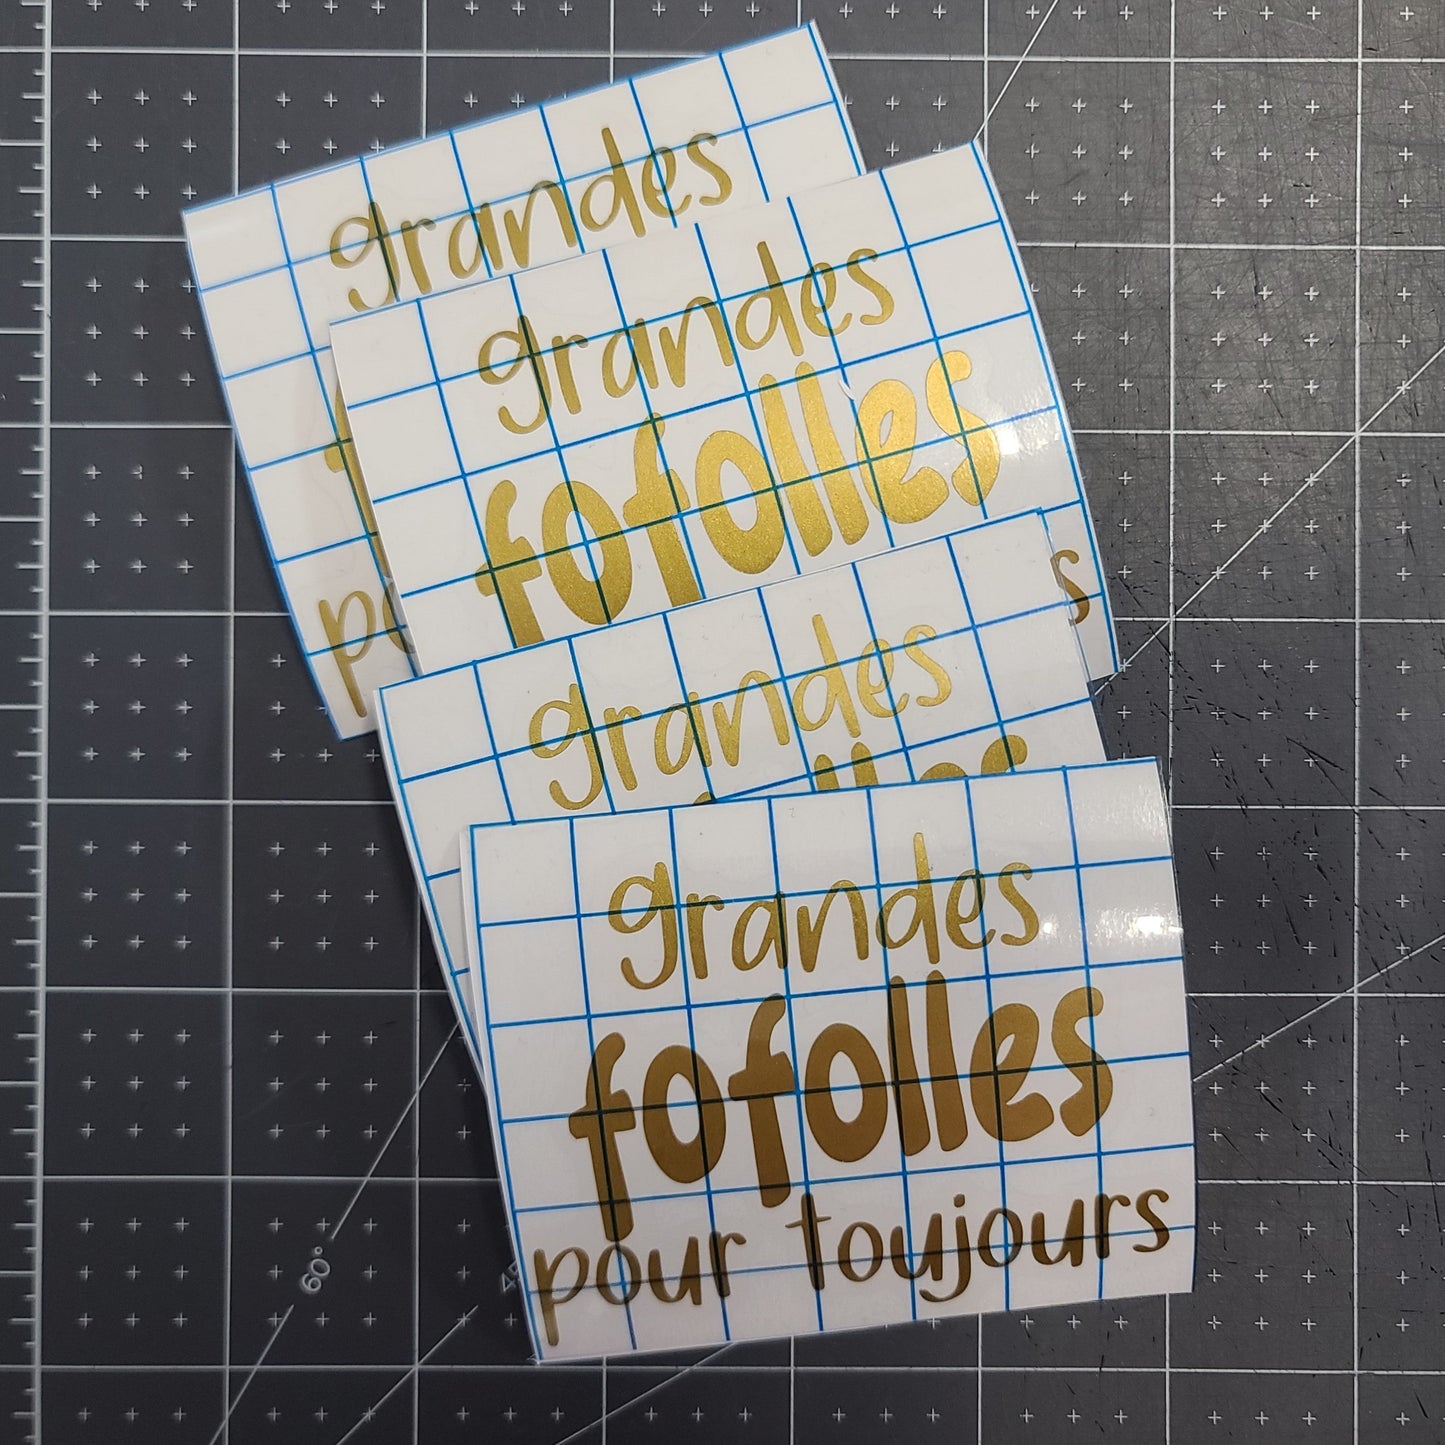 grandes
po
grandes
fofolles
s
grandes
lles
grandes
fofolles
pour toujours
60°